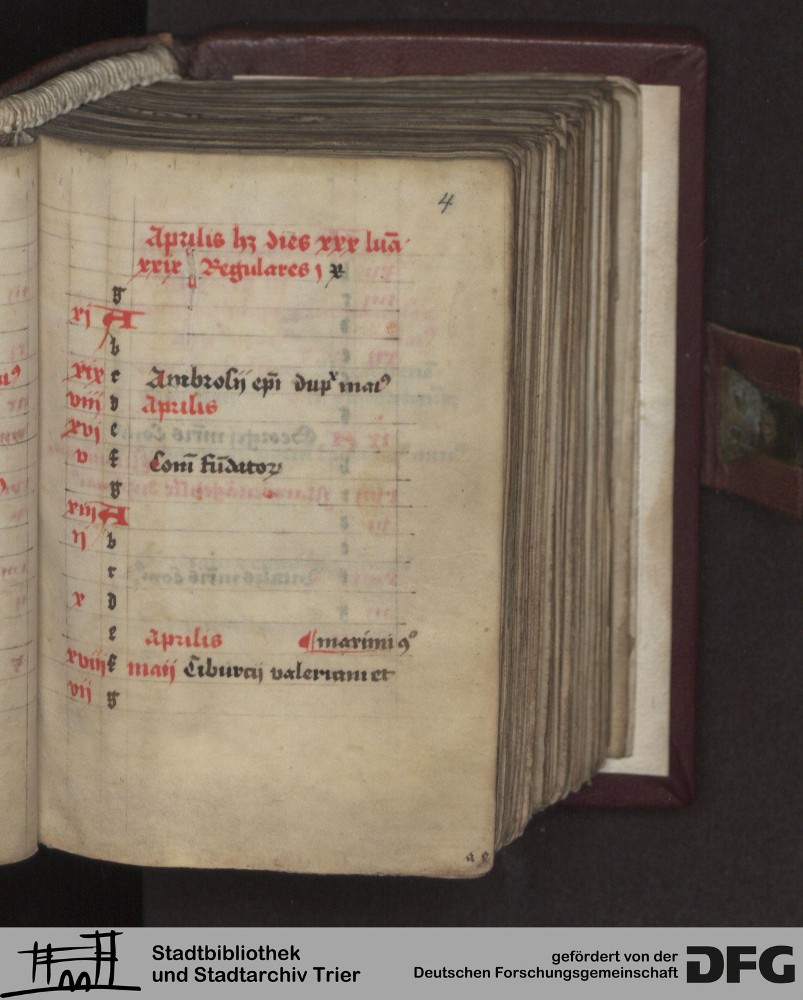 4
Aprilis hꝫ dies xxx luā
xxix Regulares j x
g
xj A
b
xix c Ambrosij ep̄i dupˣ maiꝰ
viij d Aprilis
xvj e
v f Com̄ fūdatoꝝ
g
xiij A
ij b
c
x d
e Aprilis ¶maximi 9º
xviij f maij Tiburcij valeriani et
vij g
Stadtbibliothek
und Stadtarchiv Trier
gefördert von der
Deutschen Forschungsgemeinschaft
DFG